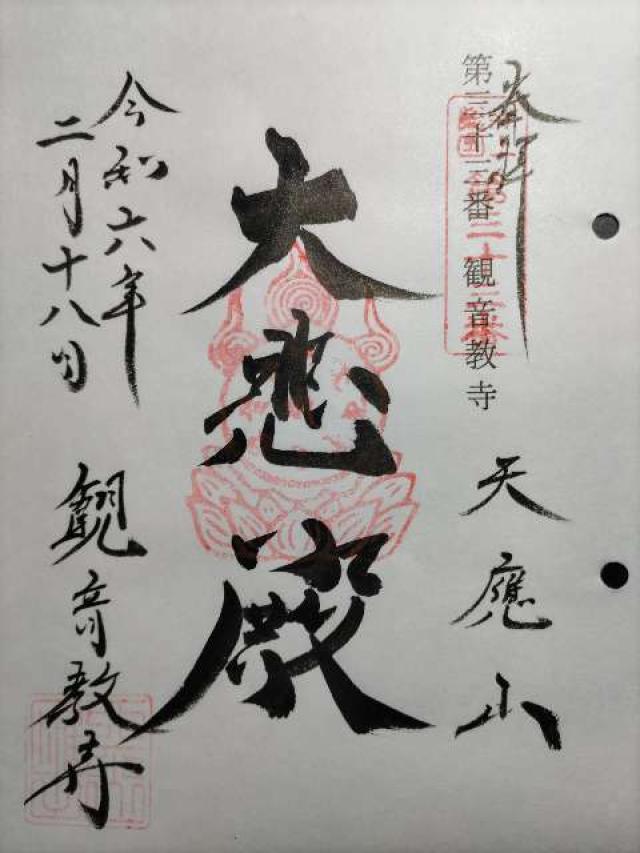 奉拝
第三十三番 観音教寺
天應山
大悲殿
令和六年
二月十八日
観音教寺